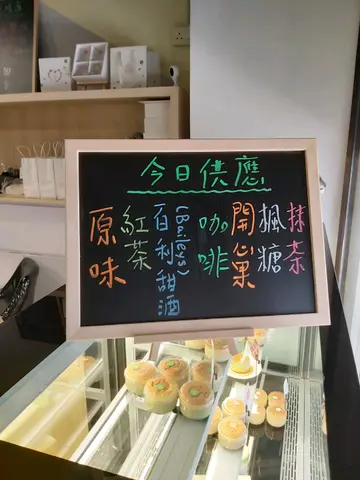 今日供應
抹茶
楓糖
開心菓
咖啡
百利甜酒
(Baileys)
紅茶
原味